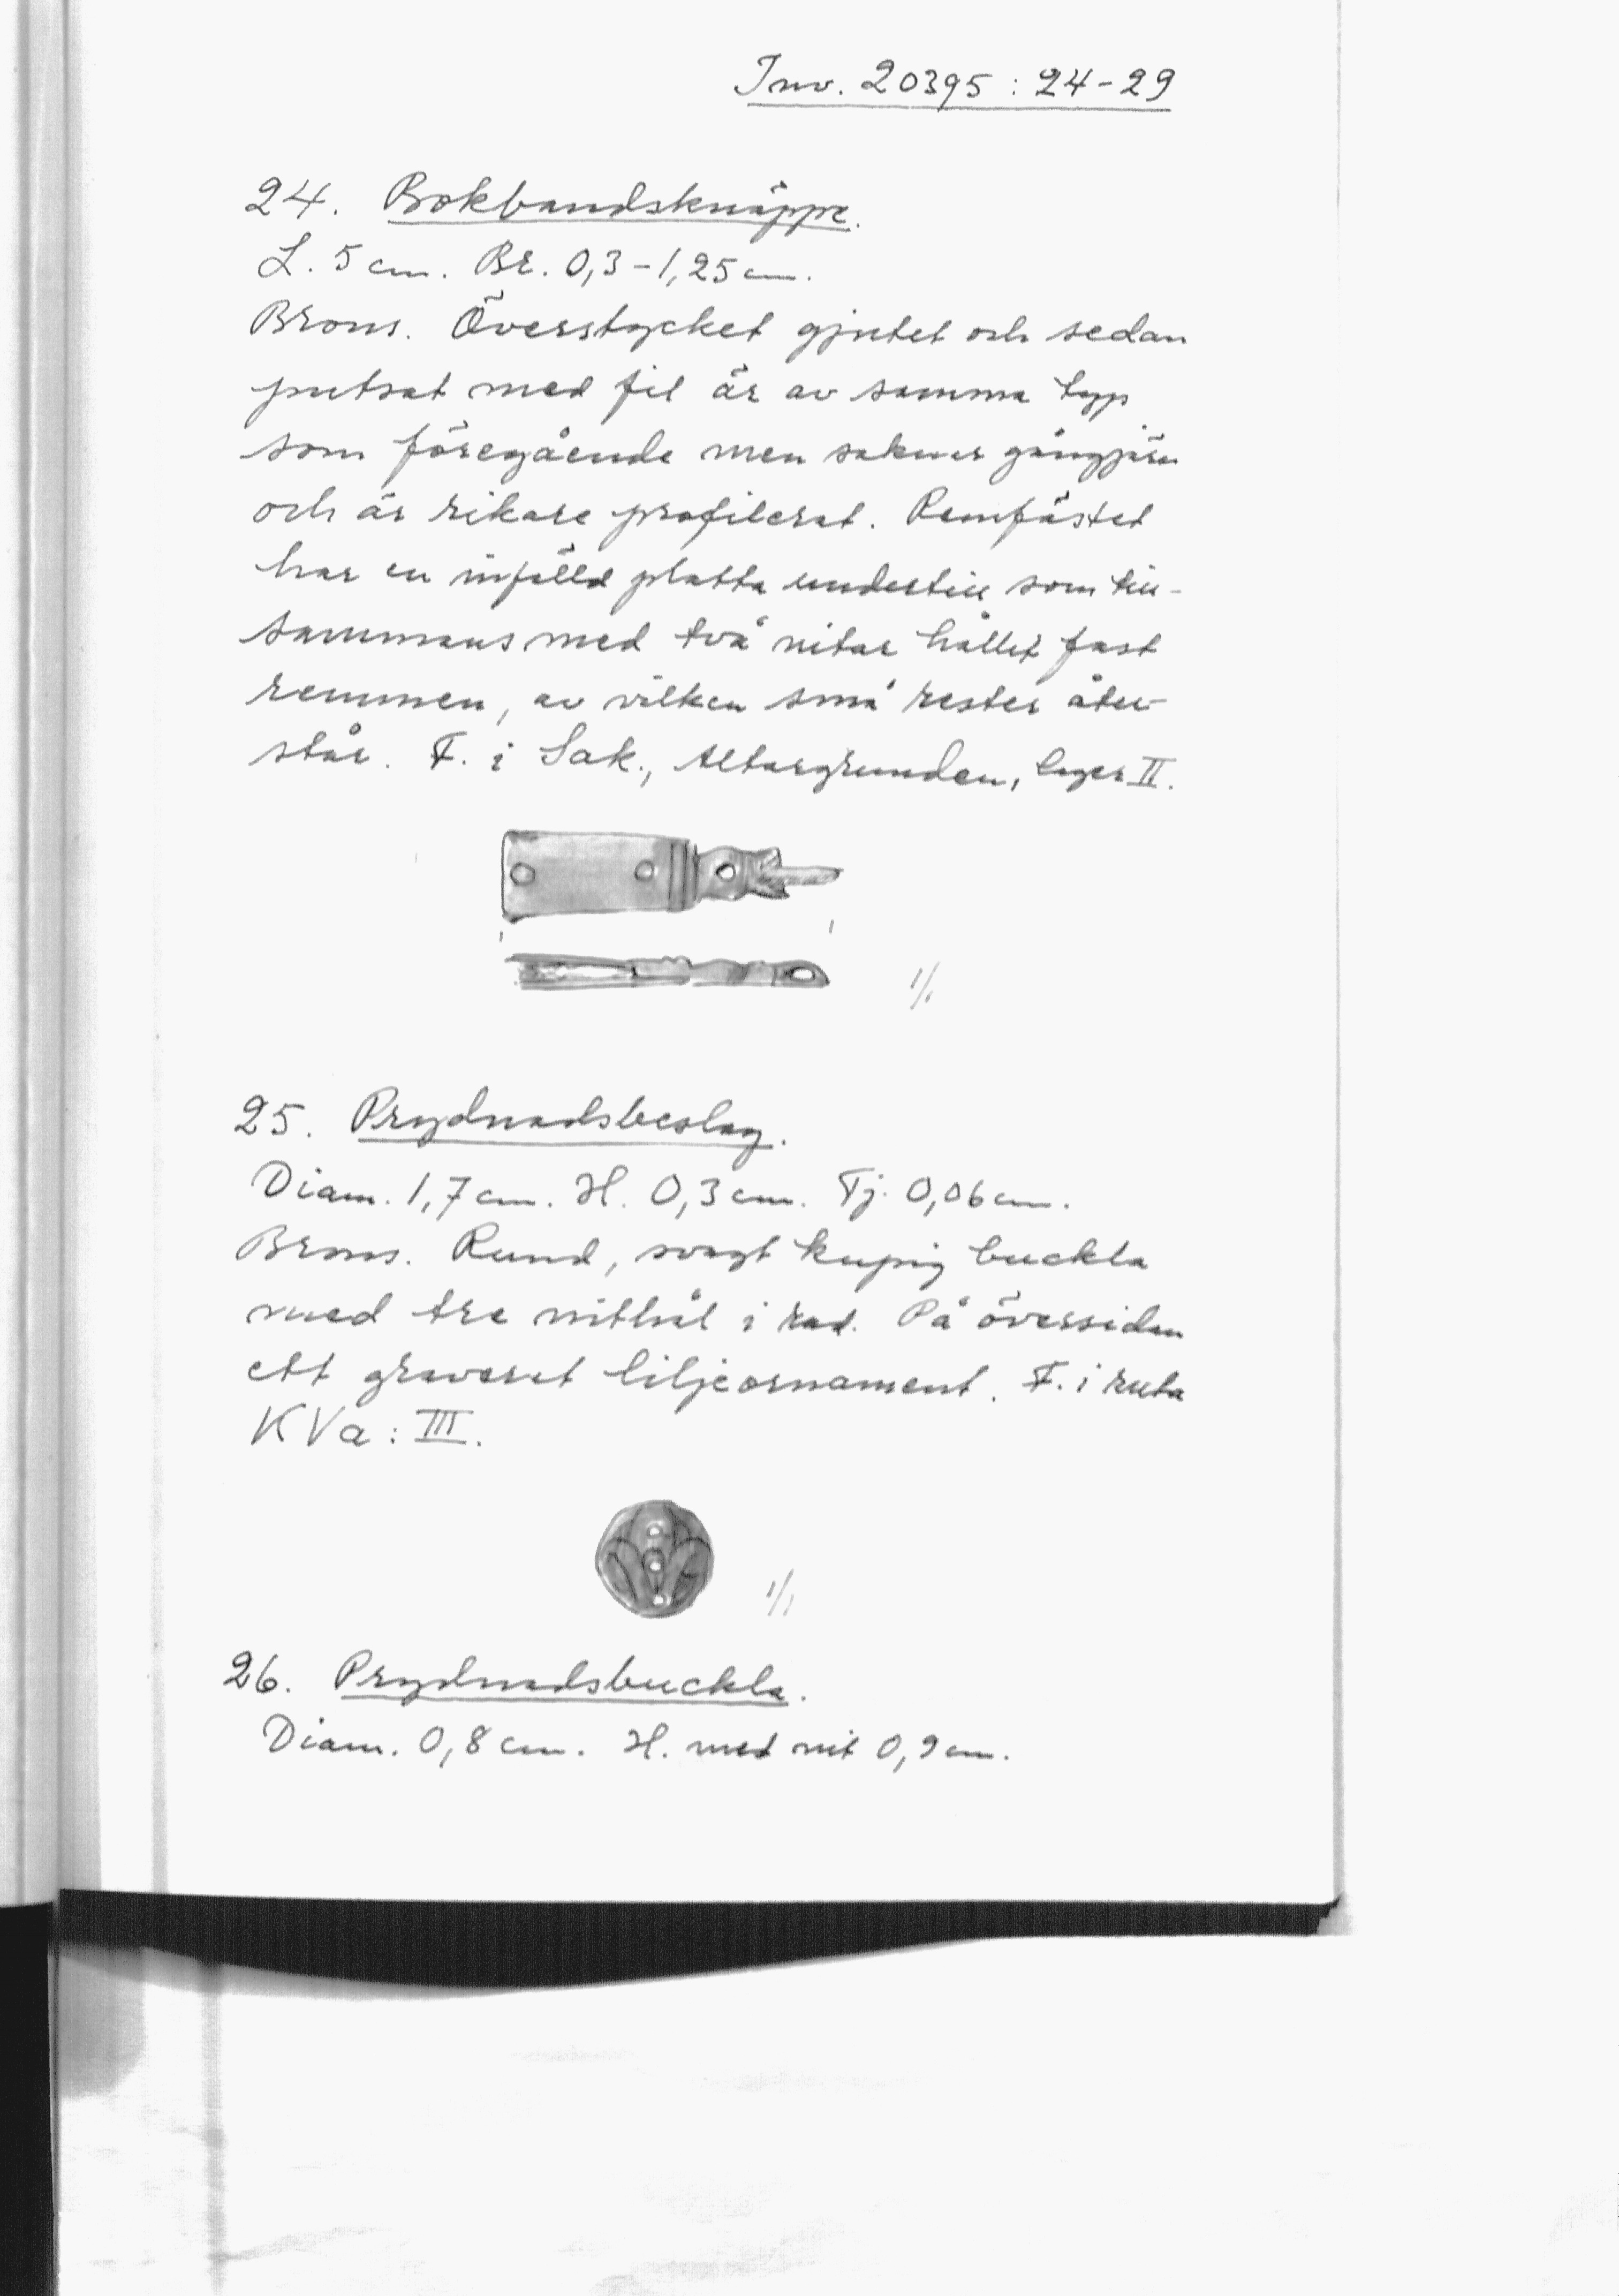 Inv. 20395 : 24-29
24. Bokbandsknäppe.
L. 5 cm. Br. 0,3-1,25 cm.
Brons. Överstycket gjutet och sedan
putsat med fil är av samma typ
som föregående men saknar gångjärn
och är rikare profilerat. Remfästet
har en infälld platta undertill som till-
sammans med två nitar hållit fast
remmen, av vilken små rester åter-
står. F. i Sak., Altargrunden, lager II.
1/1
25. Prydnadsbeslag.
Diam. 1,7 cm. H. 0,3 cm. Tj. 0,06 cm.
Brons. Rund, svagt kupig buckla
med tre nithål i rad. På översidan
ett graverat liljeornament. F. i ruta
KVa : III.
1/1
26. Prydnadsbuckla.
Diam. 0,8 cm. H. med nit 0,9 cm.